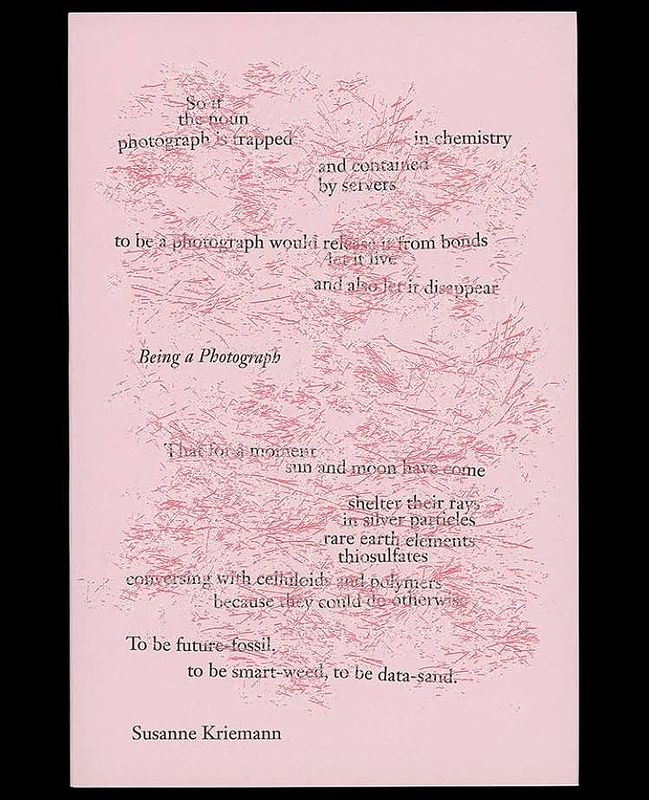 So if
the noun
photograph is trapped in chemistry
and contained
by servers
to be a photograph would release it from bonds
let it live
and also let it disappear
Being a Photograph
That for a moment
sun and moon have come
shelter their rays
in silver particles
rare earth elements
thiosulfates
conversing with celluloids and polymers
because they could do otherwise
To be future-fossil,
to be smart-weed, to be data-sand.
Susanne Kriemann